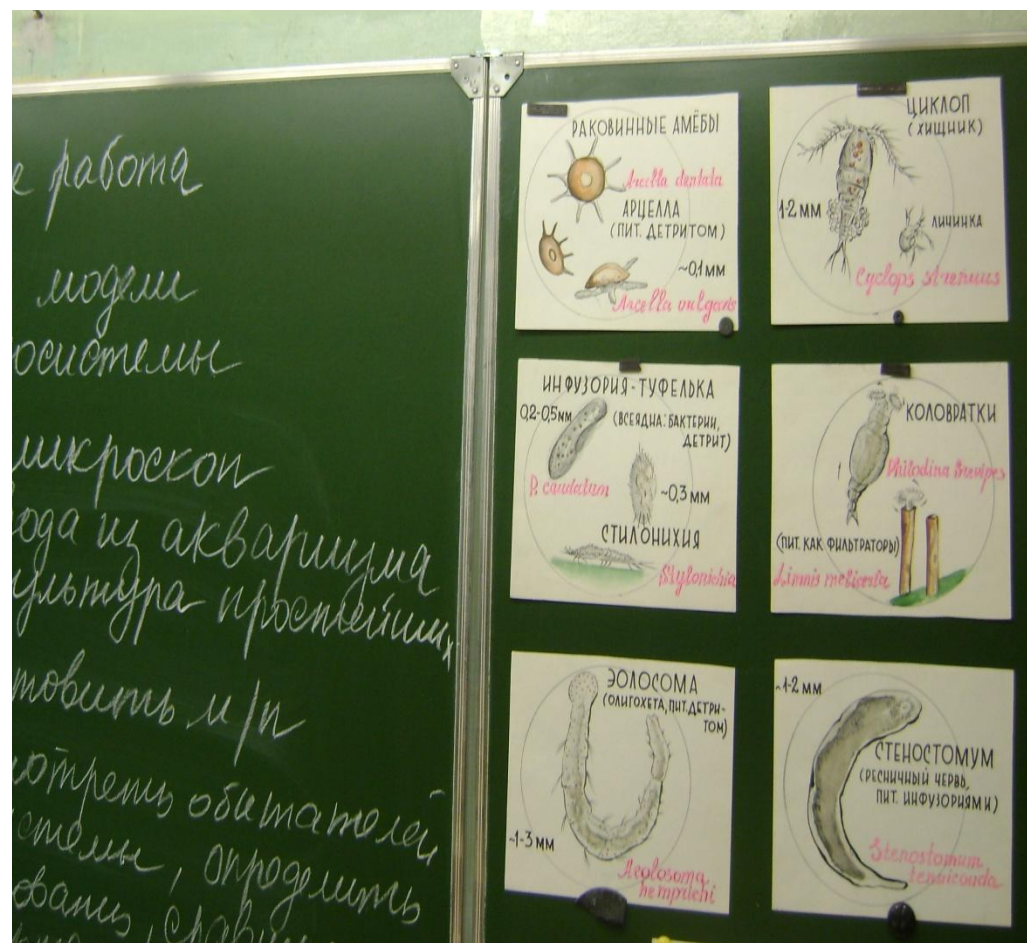 е работа
модели
осистемы
микроскоп
ода из аквариума
ультура простейших
товить м/п
отреть обитателей
стемы, определить
РАКОВИННЫЕ АМЁБЫ
Arcella dentata
АРЦЕЛЛА
(ПИТ. ДЕТРИТОМ)
~0,1 мм
Arcella vulgaris
ЦИКЛОП
(ХИЩНИК)
1-2 мм
ЛИЧИНКА
Cyclops strenuus
ИНФУЗОРИЯ-ТУФЕЛЬКА
0,2-0,5мм
(ВСЕЯДНА: БАКТЕРИИ,
ДЕТРИТ)
P. caudatum
~0,3 мм
СТИЛОНИХИЯ
Stylonichia
КОЛОВРАТКИ
Philodina brevipes
(ПИТ. КАК ФИЛЬТРАТОРЫ)
Limnis melicerta
ЭОЛОСОМА
(ОЛИГОХЕТА, ПИТ. ДЕТРИ-
ТОМ)
~1-3 мм
Aeolosoma
hemprichi
~1-2 мм
СТЕНОСТОМУМ
(РЕСНИЧНЫЙ ЧЕРВЬ,
ПИТ. ИНФУЗОРИЯМИ)
Stenostomum
tenuicauda